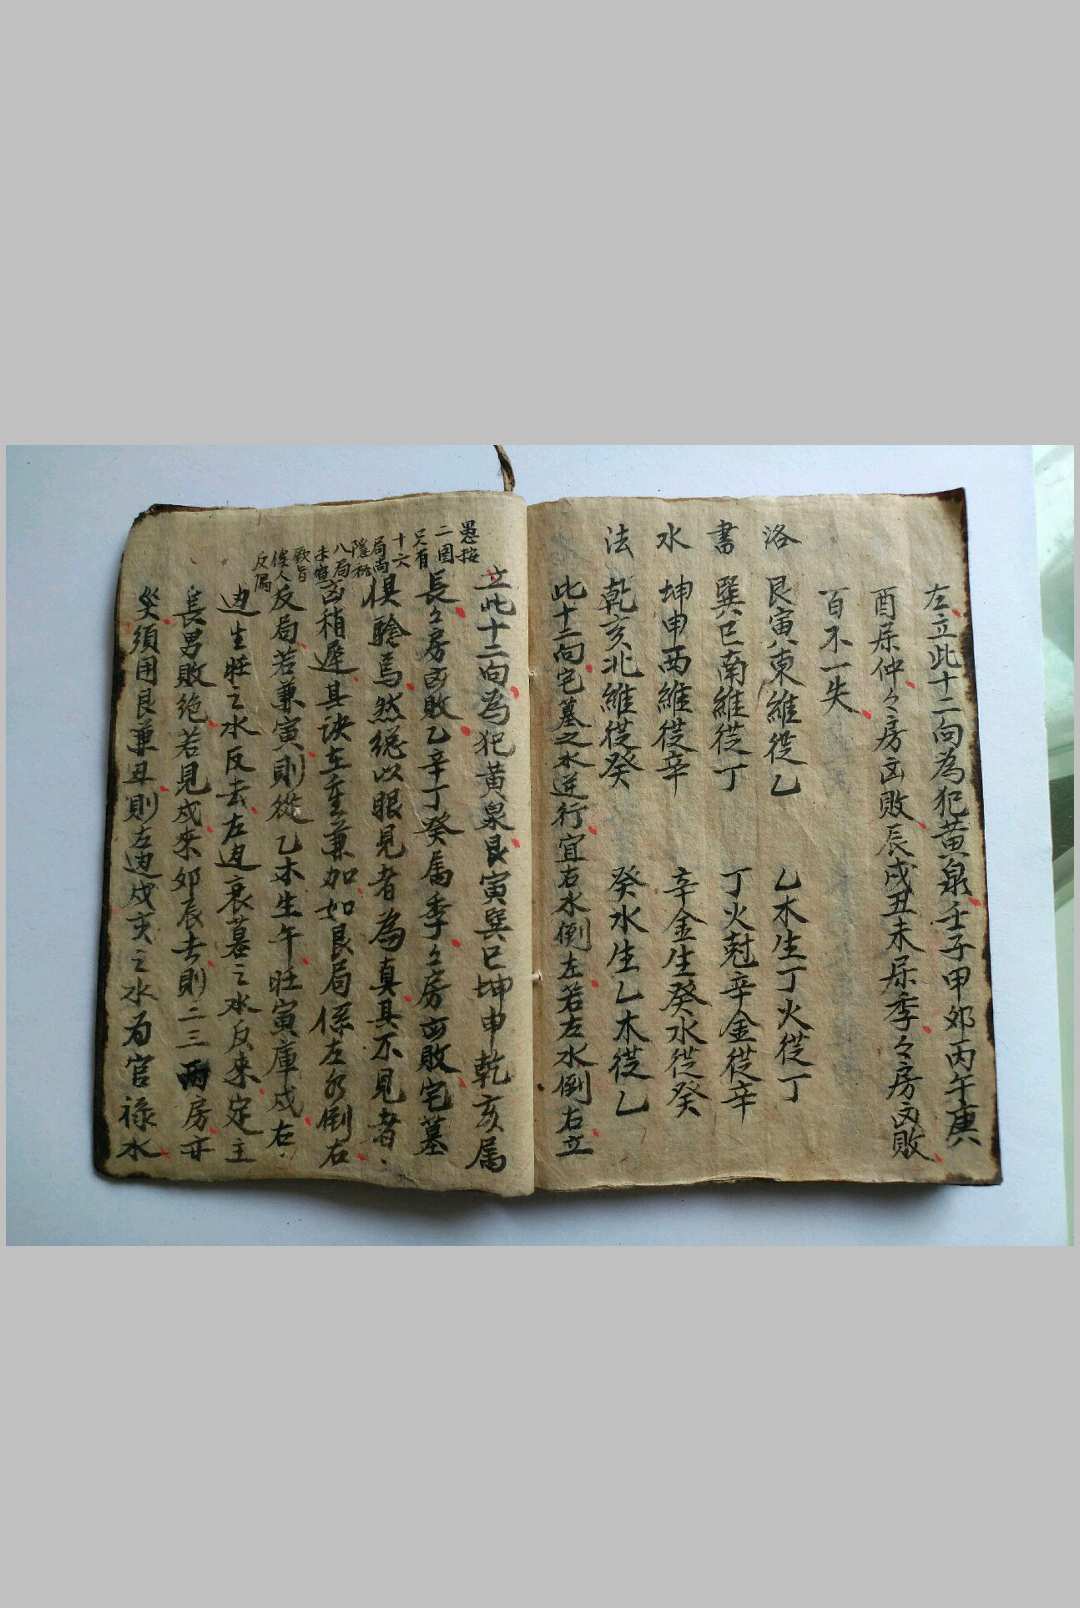 左立此十二向為犯黃泉壬子甲卯丙午庚
酉屬仲々房凶敗辰戌丑未屬季々房凶敗
百不一失
洛 艮寅東維從乙 乙木生丁火從丁
書 巽巳南維從丁 丁火尅辛金從辛
水 坤申西維從辛 辛金生癸水從癸
法 乾亥北維從癸 癸水生乙木從乙
此十二向宅墓之水逆行宜右水倒左若左水倒右立
立此十二向為犯黃泉艮寅巽巳坤申乾亥属
長々房凶敗乙辛丁癸属季々房凶敗宅墓
俱驗焉然總以眼見者為真其不見者
凶稍遲其訣在重兼加如艮局係左水倒右
反局若兼寅則從乙木生午旺寅庫戌右
边生旺之水反去左边衰墓之水反來定主
長男敗絕若見戌來卯辰去則二三兩房亦
災須用艮兼丑則左边戌亥之水為官祿水
愚按
二圖
只有
十六
局尚
隱
八局
未
歟旨
後人
反